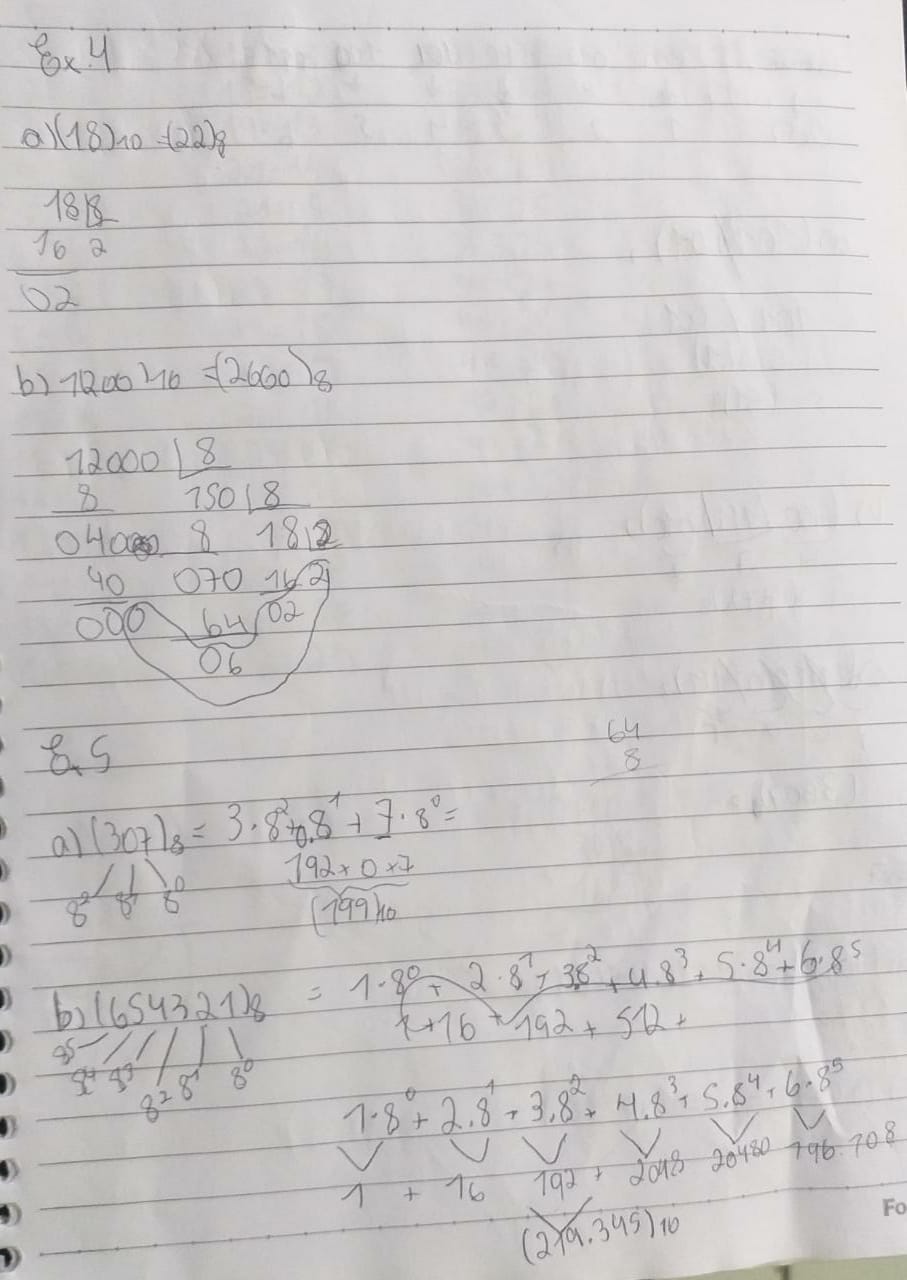 Ex.4
a)(18)10 =(22)8
18|8
16 2
02
b) 1200)10 =(2660)8
12000 | 8
8 150 | 8
0400 8 18|8
40 070 16 2
000 64 02
06
Ex.5
64
8
a)(307)8 = 3.8² + 0.8¹ + 7.8⁰ =
192 + 0 + 7
8² 8¹ 8⁰
(199)10
b)(654321)8 = 1.8⁰ + 2.8¹ + 3.8² + 4.8³ + 5.8⁴ + 6.8⁵
1+16 + 192 + 512 +
8⁵ 8⁴ 8³ 8² 8¹ 8⁰
1.8⁰ + 2.8¹ + 3.8² + 4.8³ + 5.8⁴ + 6.8⁵
1 + 16 192 + 2048 20480 196.708
(219.345)10
Fo